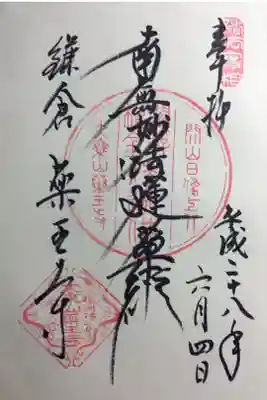 奉拝
平成二十八年
六月四日
南無妙法蓮華経
鎌倉 薬王寺
開山日像上人
大乗山薬王寺